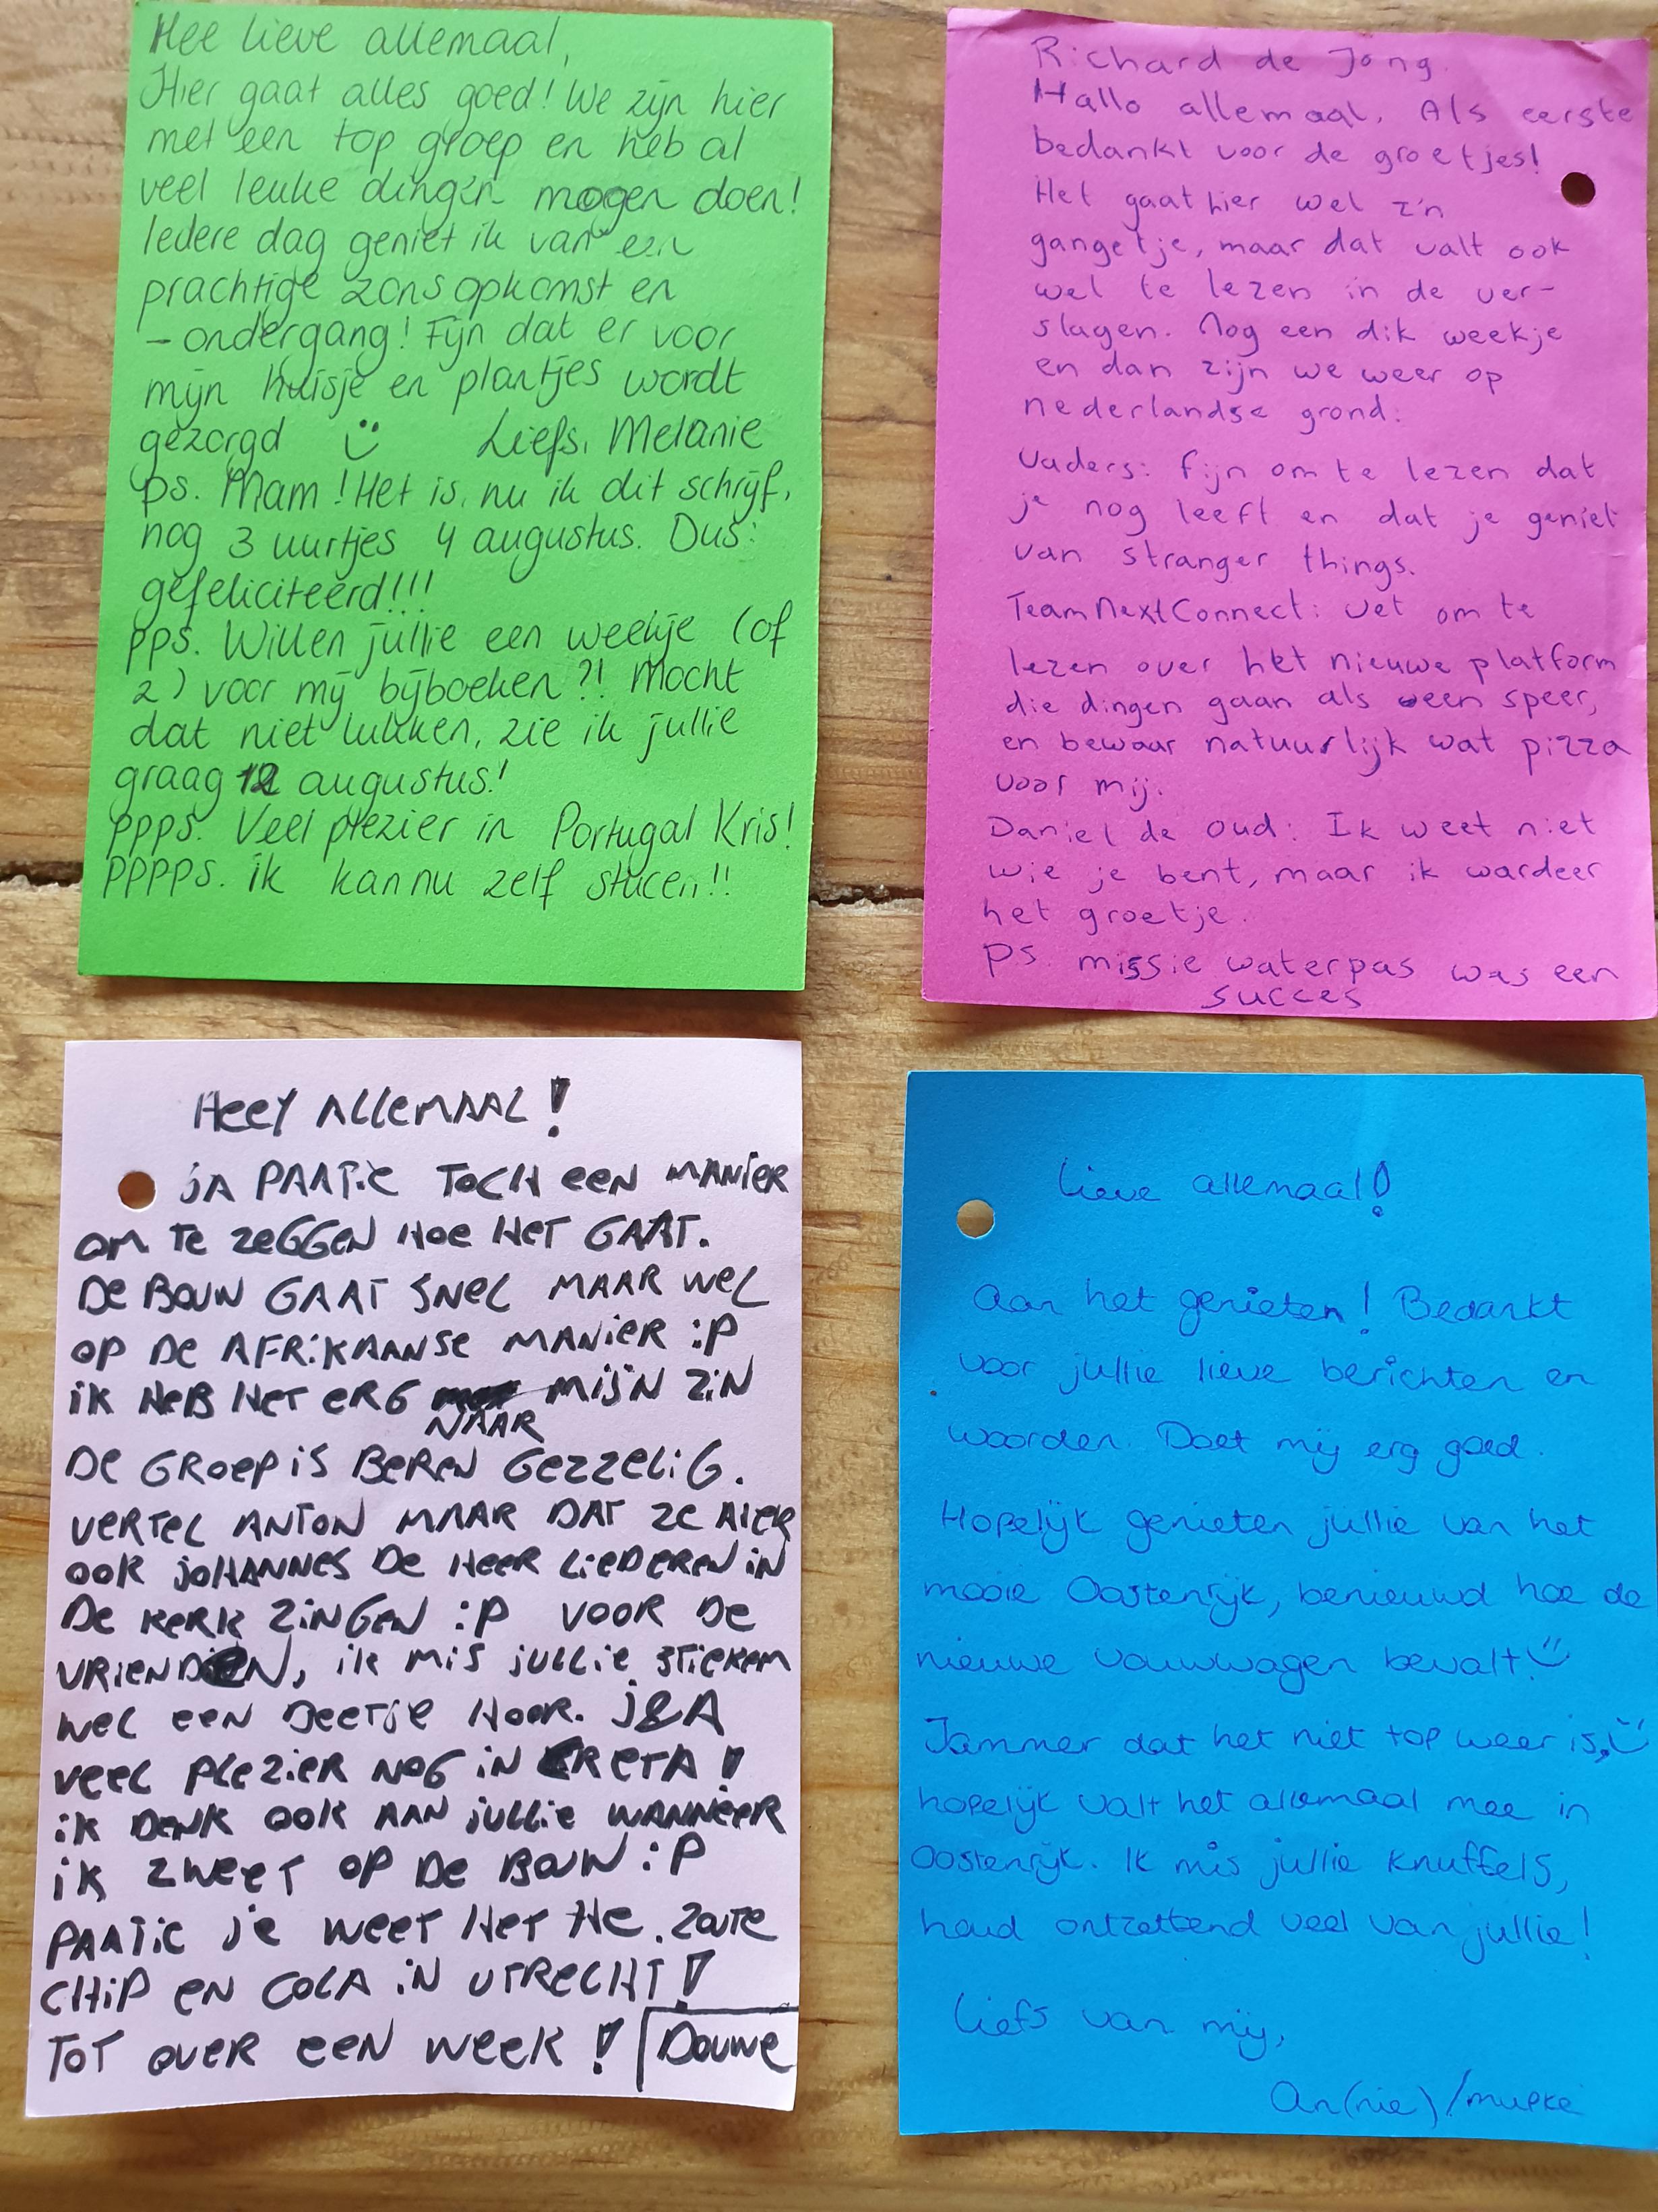 Hee lieve allemaal,
Hier gaat alles goed! We zijn hier
met een top groep en heb al
veel leuke dingen mogen doen!
Iedere dag geniet ik van een
prachtige zonsopkomst en
-ondergang! Fijn dat er voor
mijn huisje en plantjes wordt
gezorgd ü Liefs, Melanie
ps. Mam! Het is, nu ik dit schrijf,
nog 3 uurtjes 4 augustus. Dus:
gefeliciteerd!!!
pps. Willen jullie een weekje (of
2) voor mij bijboeken?! Mocht
dat niet lukken, zie ik jullie
graag 12 augustus!
ppps. Veel plezier in Portugal Kris!
PPPPS. ik kan nu zelf stucen!!
Richard de Jong
Hallo allemaal. Als eerste
bedankt voor de groetjes!
Het gaat hier wel z'n
gangetje, maar dat valt ook
wel te lezen in de ver-
slagen. Nog een dik weekje
en dan zijn we weer op
nederlandse grond.
Vaders: fijn om te lezen dat
je nog leeft en dat je geniet
van stranger things.
TeamNextConnect: Vet om te
lezen over het nieuwe platform
die dingen gaan als een speer,
en bewaar natuurlijk wat pizza
voor mij.
Daniel de oud: Ik weet niet
wie je bent, maar ik wardeer
het groetje.
PS. missie waterpas was een
succes
HEEY ALLEMAAL!
JA PAATJE TOCH EEN MANIER
OM TE ZEGGEN HOE HET GAAT.
DE BOUW GAAT SNEL MAAR WEL
OP DE AFRIKAANSE MANIER :P
IK HEB HET ERG MIJN ZIN
NAAR
DE GROEP IS BEREN GEZZELIG.
VERTEL ANTON MAAR DAT ZE HIER
OOK JOHANNES DE HEER LIEDEREN IN
DE KERK ZINGEN :P VOOR DE
VRIENDEN, IK MIS JULLIE STIEKEM
WEL EEN BEETJE HOOR. J&A
VEEL PLEZIER NOG IN KRETA!
IK DENK OOK AAN JULLIE WANNEER
IK ZWEET OP DE BOUW :P
PAATJE JE WEET HET HE. ZOUTE
CHIP EN COLA IN UTRECHT!
TOT OVER EEN WEEK! DOUWE
Lieve allemaal!
Aan het genieten! Bedankt
voor jullie lieve berichten en
woorden. Doet mij erg goed.
Hopelijk genieten jullie van het
mooie Oostenrijk, benieuwd hoe de
nieuwe vouwwagen bevalt! ü
Jammer dat het niet top weer is,
hopelijk valt het allemaal mee in
Oostenrijk. Ik mis jullie knuffels,
houd ontzettend veel van jullie!
Liefs van mij,
An(nie)/mupke